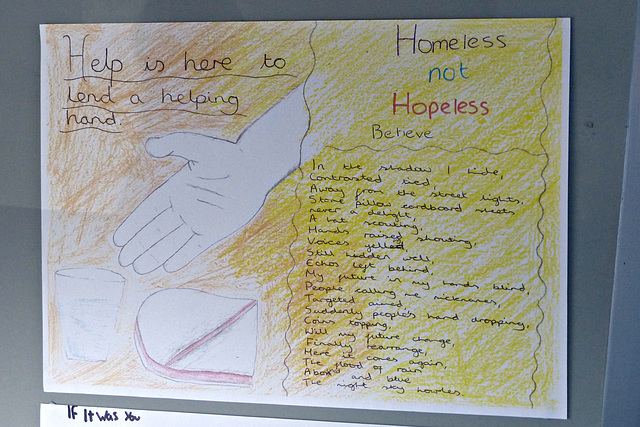 Help is here to
lend a helping
hand.
Homeless
not
Hopeless
Believe
In the shadow I hide,
Contrasted tied
Away from the street lights,
Stone pillow cardboard sheets
never a delight,
A hat scouting,
Hands raised shouting,
Voices yelled
Still hidden well,
Echos left behind,
My future in my hands blind,
People calling me nicknames,
Targeted aimed,
Suddenly people's hand dropping,
Coins topping,
Will my future change,
Finally rearrange,
Here it comes again,
The flood of rain
Above and blue
The night sky howles.
If It was You